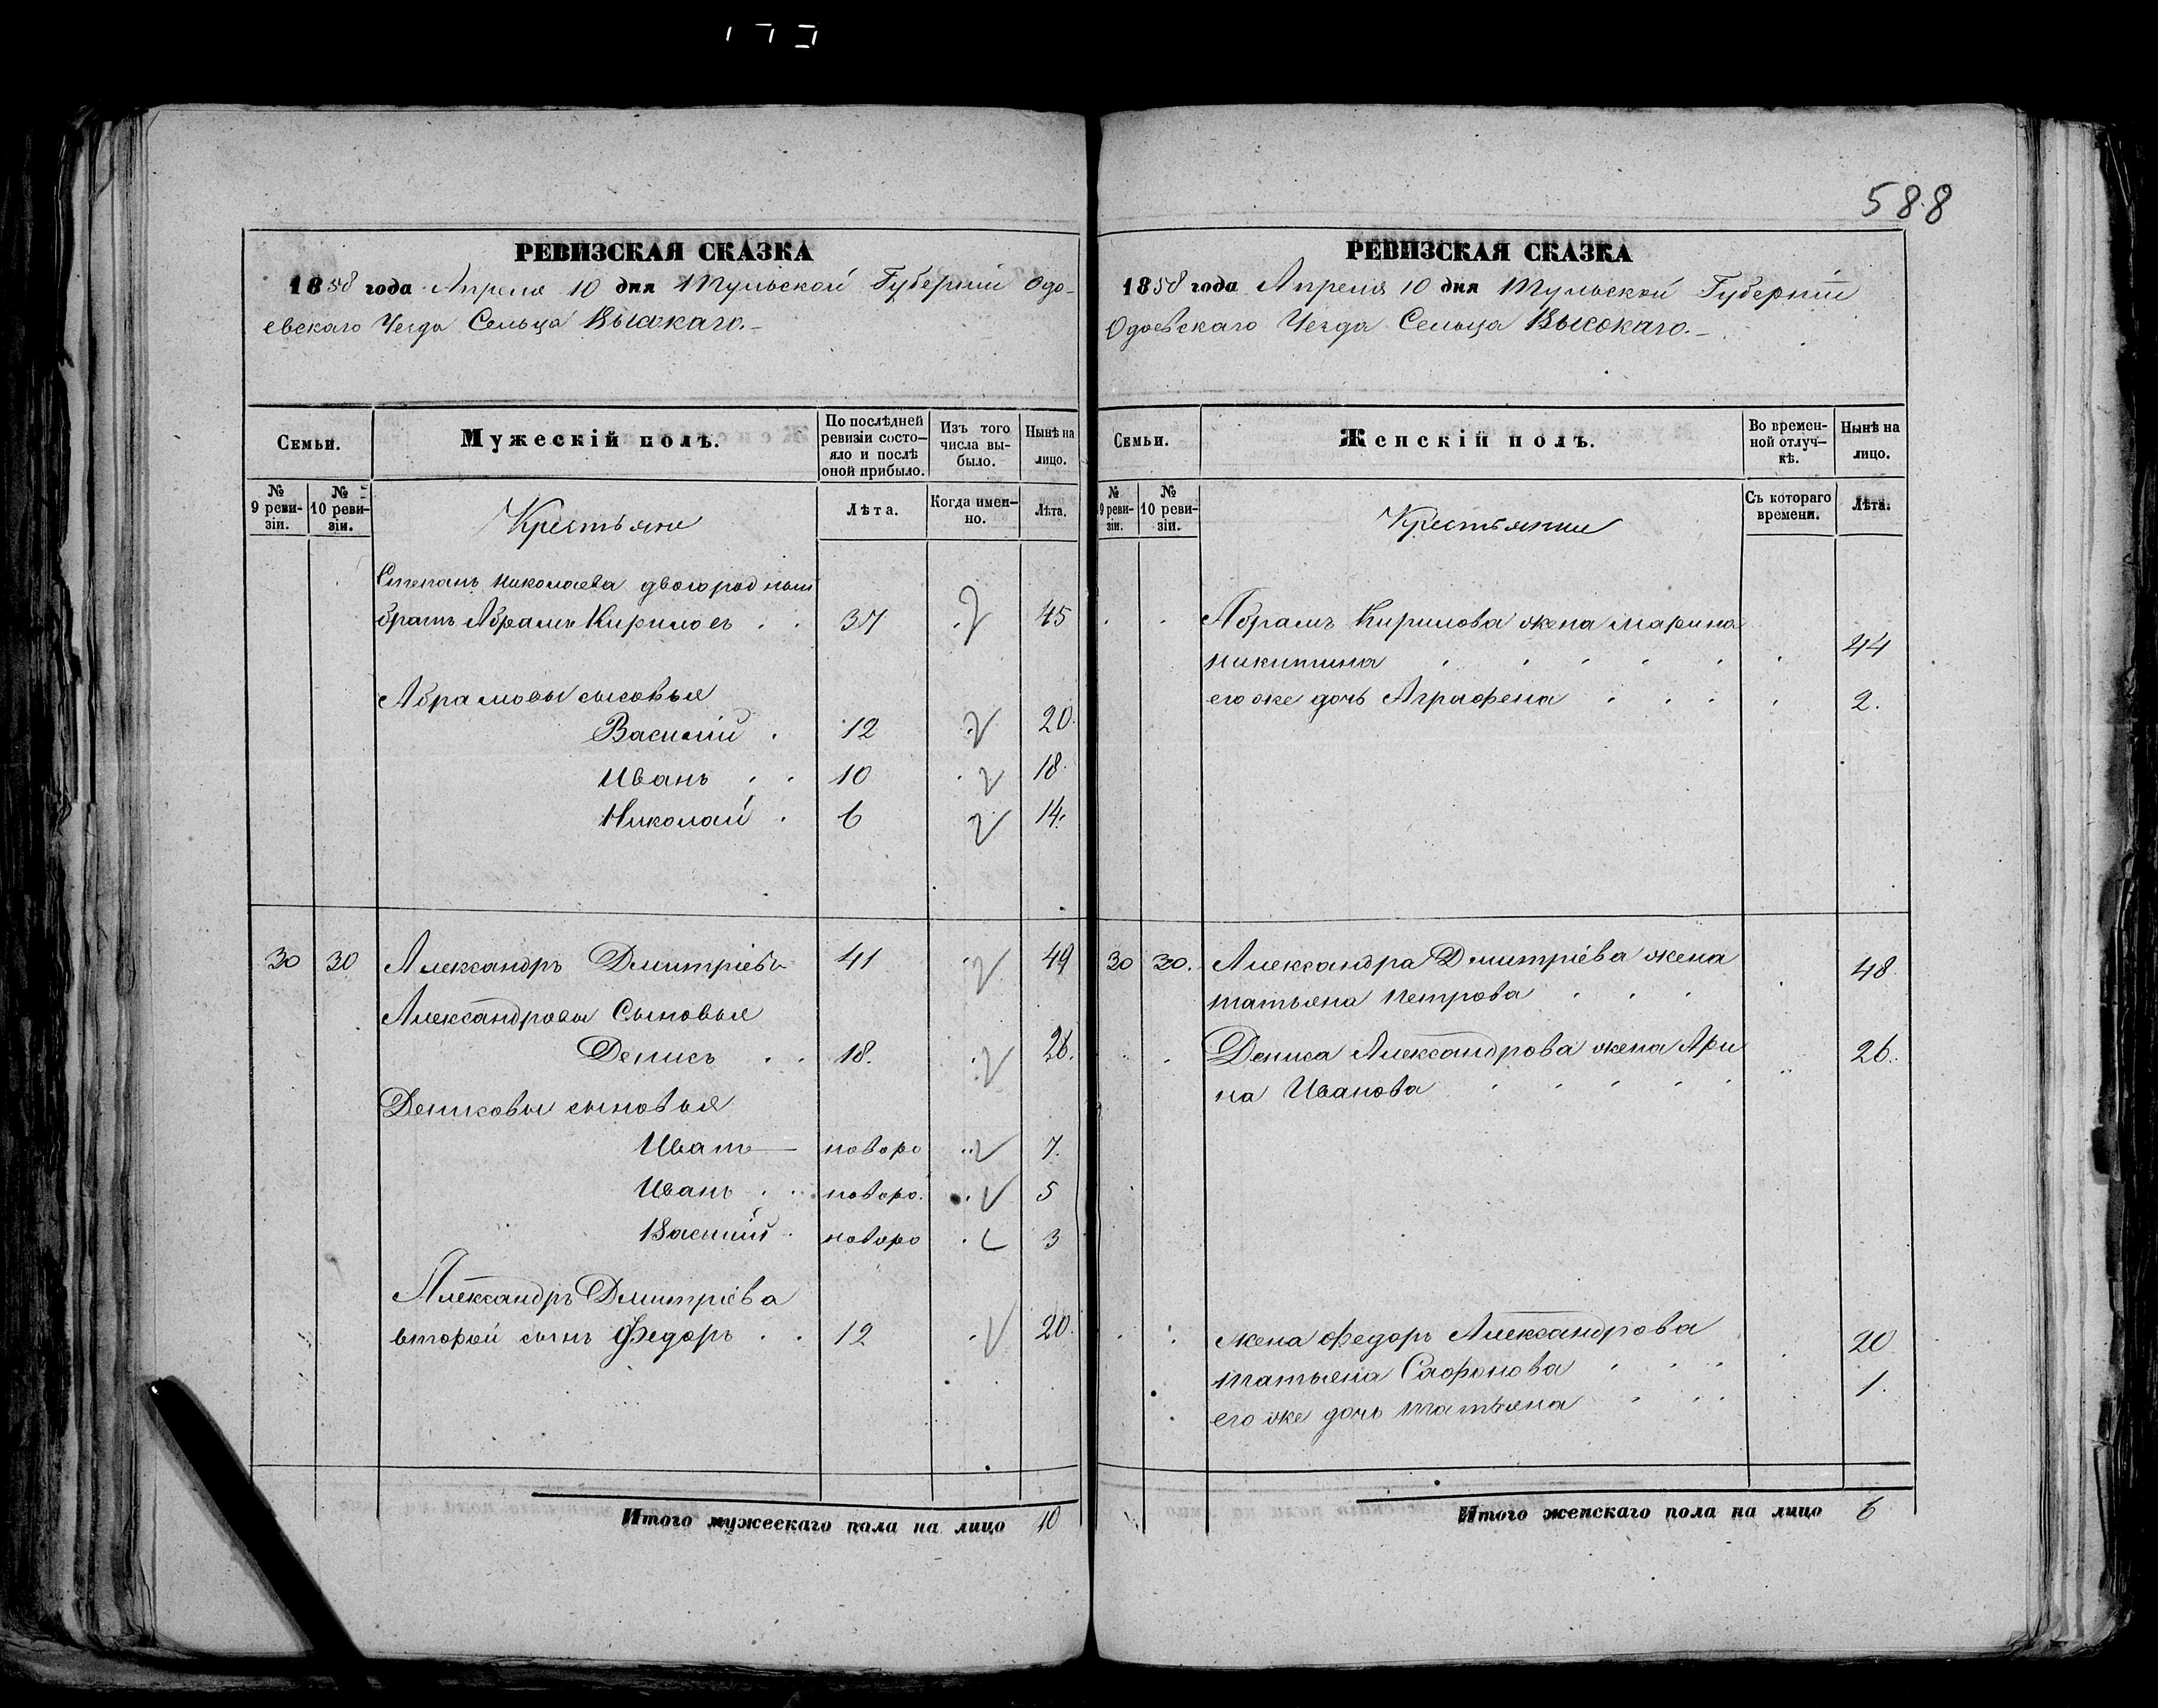 588
РЕВИЗСКАЯ СКАЗКА
1858 года Апреля 10 дня Тульской Губернiи Одо-
евскаго Уезда Сельца Высокаго.
Семьи.
Мужескій полъ.
По послѣдней ревизіи состо-яло и послѣ оной прибыло.
Изъ того числа вы-было.
Нынѣ на лицо.
№ 9 реви-зіи.
№ 10 реви-зіи.
Крестьяне
Лѣта.
Когда имен-но.
Лѣта.
Степанъ Николаева двоюродный
братъ Абрамъ Кириловъ 37 45
Абрамовы сыновья
Василій 12 20
Иванъ 10 18
Николай 6 14
30 30 Александръ Дмитріевъ 41 49
Александровы Сыновья
Денисъ 18. 26.
Денисовы сыновья
Иванъ новоро 7.
Иванъ новоро. 5
Василій новоро 3
Александръ Дмитріева
второй сынъ Федоръ 12 20.
Итого мужескаго пола на лицо 10
РЕВИЗСКАЯ СКАЗКА
1858 года Апреля 10 дня Тульской Губерніи
Одоевскаго Уезда Сельца Высокаго.
Семьи.
Женскій полъ.
Во времен-ной отлуч-кѣ.
Нынѣ на лицо.
№ 9 реви-зіи.
№ 10 реви-зіи.
Крестьянки
Съ котораго времени.
Лѣта.
Абрамъ Кирилова жена Марина
Никитина 44
его же дочь Аграфена 2.
30 30. Александра Дмитріева жена
Татьяна Петрова 48
Дениса Александрова жена Ари
на Иванова 26.
жена Федоръ Александрова
Татьяна Сафонова 20
его же дочь Татьяна 1.
Итого женскаго пола на лицо 6